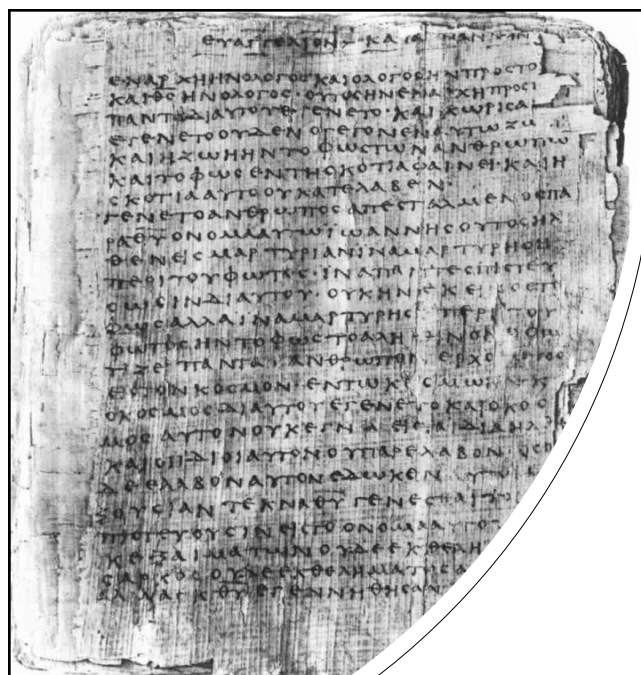 ΕΥΑΓΓΕΛΙΟΝ ΚΑΤΑ ΙΩΑΝΝΗΝ
ΕΝΑΡΧΗΗΝΟΛΟΓΟϹΚΑΙΟΛΟΓΟϹΗΝΠΡΟϹΤΟ
ΚΑΙΘϹΗΝΟΛΟΓΟϹ·ΟΥΤΟϹΗΝΕΝΑΡΧΗΠΡΟϹΤ
ΠΑΝΤΑΔΙΑΥΤΟΥΕΓΕΝΕΤΟ·ΚΑΙΧΩΡΙϹΑ
ΕΓΕΝΕΤΟΟΥΔΕΝΟΓΕΓΟΝΕΝΑΥΤΩΖΩ
ΚΑΙΗΖΩΗΗΝΤΟΦΩϹΤΩΝΑΝΘΡΩΠΩ
ΚΑΙΤΟΦΩϹΕΝΤΗϹΚΟΤΙΑΦΑΙΝΕΙ·ΚΑΙΗ
ϹΚΟΤΙΑΑΥΤΟΟΥΚΑΤΕΛΑΒΕΝ·
ΓΕΝΕΤΟΑΝΘΡΩΠΟϹΑΠΕϹΤΑΛΜΕΝΟϹΠΑ
ΡΑΘΥΟΝΟΜΑΑΥΤΩΙΩΑΝΝΗϹΟΥΤΟϹΗΛ
ΘΕΝΕΙϹΜΑΡΤΥΡΙΑΝΙΝΑΜΑΡΤΥΡΗϹΗ
ΠΕΡΙΤΟΥΦΩΤΟϹ·ΙΝΑΠΑΝΤΕϹΠΙϹΤΕΥ
ϹΩϹΙΝΔΙΑΥΤΟΥ ΟΥΚΗΝΕΚΕΙΝΟϹΤΟ
ΦΩϹΑΛΛΑΙΝΑΜΑΡΤΥΡΗϹΗ ΠΕΡΙΤΟΥ
ΦΩΤΟϹΗΝΤΟΦΩϹΤΟΑΛΗΘΙΝΟΝΟΦΩ
ΤΙΖΕΙ ΠΑΝΤΑ ΑΝΘΡΩΠΟΝ ΕΡΧΟΜΕΝΟ
ΕΙϹΤΟΝΚΟϹΜΟΝ·ΕΝΤΩΚΟϹΜΩΗΝΚ
ΟΚΟϹΜΟϹΔΙΑΥΤΟΥΕΓΕΝΕΤΟΚΑΙΟΚΟϹ
ΜΟϹΑΥΤΟΝΟΥΚΕΓΝΩ ΕΙϹΤΑΙΔΙΑΗΛΘ
ΚΑΙΟΙΙΔΙΟΙΑΥΤΟΝΟΥΠΑΡΕΛΑΒΟΝ·ΟϹΟΙ
ΔΕΕΛΑΒΟΝΑΥΤΟΝΕΔΩΚΕΝΑΥΤΟΙ
ΞΟΥϹΙΑΝ ΤΕΚΝΑΘΥΓΕΝΕϹΘΑΙΤΟ
ΠΙϹΤΕΥΟΥϹΙΝΕΙϹΤΟΟΝΟΜΑΑΥΤΟ
ΚΕΞΑΙΜΑΤΩΝΟΥΔΕΕΚΘΕΛΗ
ϹΑΡΚΟϹΟΥΔΕΕΚΘΕΛΗΜΑΤΟϹΑ
ΑΛΛΑΕΚΘΥΕΓΕΝΝΗΘΗϹΑΝ